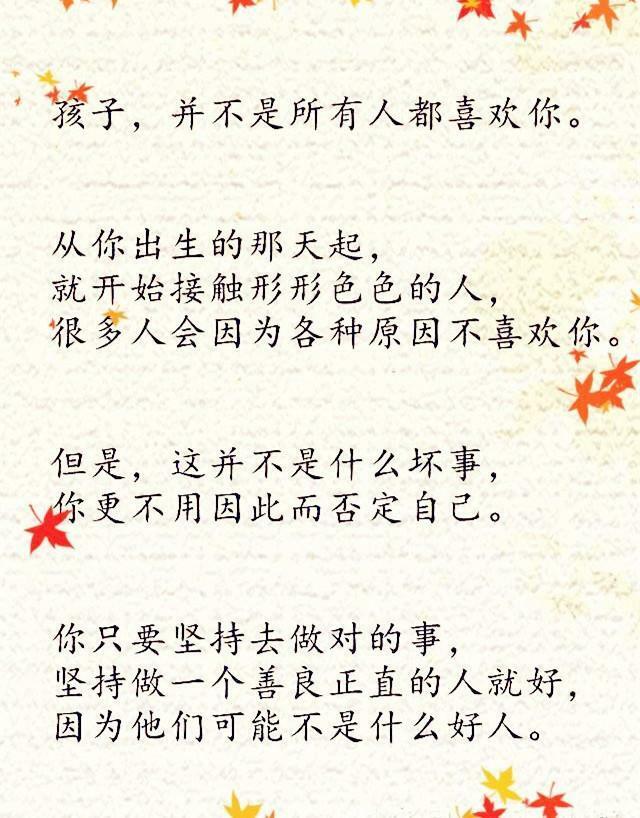 孩子，并不是所有人都喜欢你。
从你出生的那天起，
就开始接触形形色色的人，
很多人会因为各种原因不喜欢你。
但是，这并不是什么坏事，
你更不用因此而否定自己。
你只要坚持去做对的事，
坚持做一个善良正直的人就好，
因为他们可能不是什么好人。